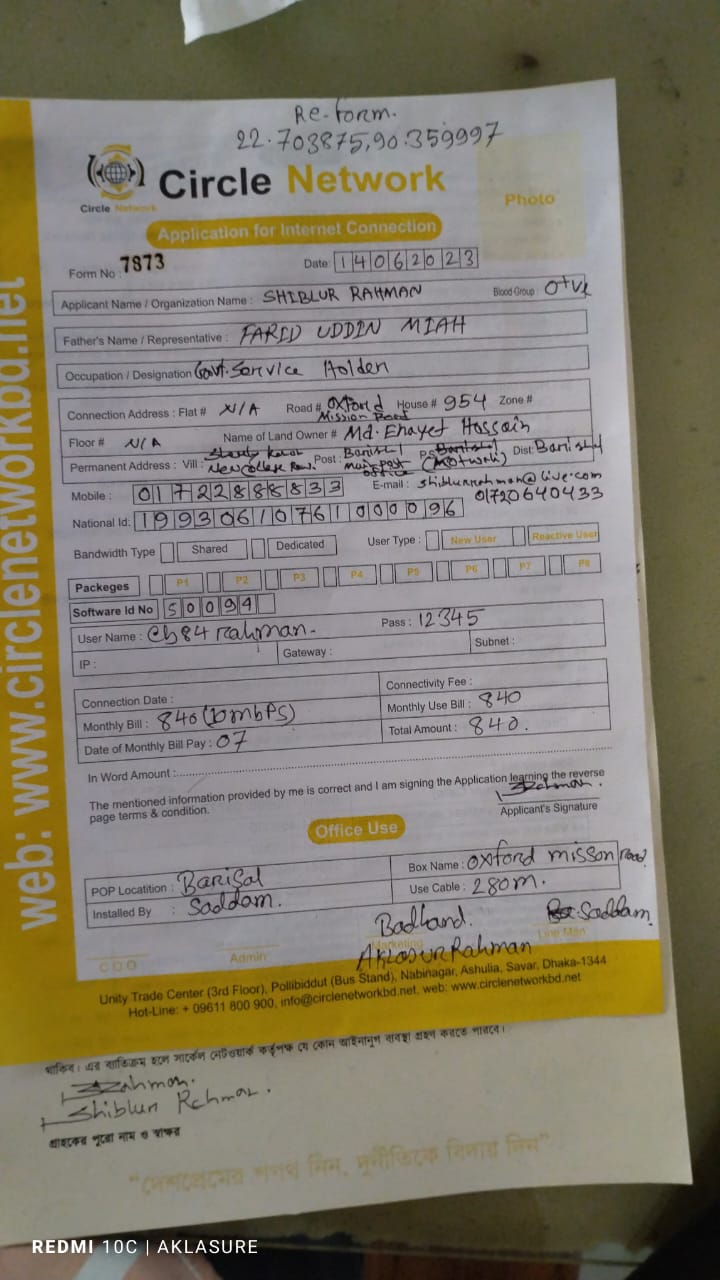 Re-form.
22.703875,90.359997
Circle Network
Circle Network
Photo
Application for Internet Connection
Form No : 7873 Date 14062023
Applicant Name / Organization Name : SHIBLUR RAHMAN Blood Group : O+ve
Father's Name / Representative : FARID UDDIN MIAH
Occupation / Designation : Govt. Service Holder
Connection Address : Flat # N/A Road # Oxford Mission Road House # 954 Zone #
Floor # N/A Name of Land Owner # Md. Enayet Hossain
Permanent Address : Vill : New College Row. Post : P.S Dist:
Mobile : 01722888833 E-mail : shiblurrahman@live.com
01720640433
National Id: 19930610761000096
Bandwidth Type Shared Dedicated User Type : New User Reactive User
Packeges P1 P2 P3 P4 P5 P6 P7 P8
Software Id No 50094
User Name : cb84 rahman. Pass : 12345
IP : Gateway : Subnet :
Connection Date : Connectivity Fee :
Monthly Bill : 840 (10mbPS) Monthly Use Bill : 840
Date of Monthly Bill Pay : 07 Total Amount : 840.
In Word Amount :
The mentioned information provided by me is correct and I am signing the Application learning the reverse
page terms & condition.
Rahman.
Applicant's Signature
Office Use
POP Locatition : Barisal Box Name : oxford misson Road.
Installed By : Saddam. Use Cable : 280m.
Badhand. Saddam.
C D O Admin Marketing Line Man
AKLASUR Rahman
Unity Trade Center (3rd Floor), Pollibiddut (Bus Stand), Nabinagar, Ashulia, Savar, Dhaka-1344
Hot-Line: + 09611 800 900, info@circlenetworkbd.net, web: www.circlenetworkbd.net
web: www.circlenetworkbd.net
থাকিব। এর ব্যতিক্রম হলে সার্কেল নেটওয়ার্ক কর্তৃপক্ষ যে কোন আইনানুগ ব্যবস্থা গ্রহণ করতে পারবে।
Rahman.
Shiblur Rahman.
গ্রাহকের পুরো নাম ও স্বাক্ষর
"দেশপ্রেমের শপথ নিন, দুর্নীতিকে বিদায় দিন"
REDMI 10C | AKLASURE